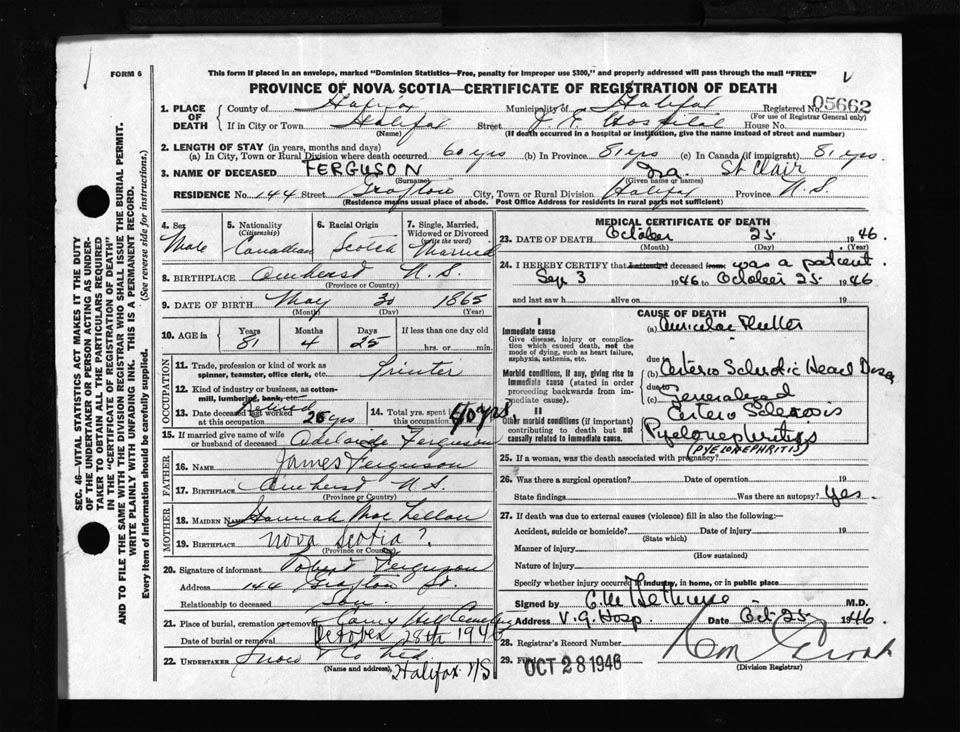 FORM 6
This form if placed in an envelope, marked "Dominion Statistics—Free, penalty for improper use $300," and properly addressed will pass through the mail "FREE"
PROVINCE OF NOVA SCOTIA—CERTIFICATE OF REGISTRATION OF DEATH
05662
1. PLACE OF DEATH
County of Halifax Municipality of Halifax Registered No.
(For use of Registrar General only)
If in City or Town Halifax Street Hospital House No.
(Name) (If death occurred in a hospital or institution, give the name instead of street and number)
2. LENGTH OF STAY (in years, months and days)
(a) In City, Town or Rural Division where death occurred 60 yrs (b) In Province 81 yrs (c) In Canada (if immigrant) 81 yrs.
3. NAME OF DECEASED FERGUSON Ira St Clair
(Surname) (Given name or names)
RESIDENCE No. 144 Street Grafton City, Town or Rural Division Halifax Province N.S.
(Residence means usual place of abode. Post Office Address for residents in rural parts not sufficient)
4. Sex Male
5. Nationality (Citizenship) Canadian
6. Racial Origin Scotch
7. Single, Married, Widowed or Divorced (write the word) Married
8. BIRTHPLACE Amherst N.S.
(Province or Country)
9. DATE OF BIRTH May 30 1865
(Month) (Day) (Year)
10. AGE in Years Months Days If less than one day old
81 4 25 hrs. or min.
OCCUPATION
11. Trade, profession or kind of work as spinner, teamster, office clerk, etc. Printer
12. Kind of industry or business, as cotton-mill, lumbering, bank, etc. Retired
13. Date deceased last worked at this occupation 20 yrs
14. Total yrs. spent in this occupation 40 yrs
15. If married give name of wife or husband of deceased Adelaide Ferguson
FATHER
16. NAME James Ferguson
17. BIRTHPLACE Amherst N.S.
(Province or Country)
MOTHER
18. MAIDEN NAME Hannah MacLellan
19. BIRTHPLACE Nova Scotia?
(Province or Country)
20. Signature of informant Robert Ferguson
Address 144 Grafton St.
Relationship to deceased Son
21. Place of burial, cremation or removal Camp Hill Cemetery
Date of burial or removal October 28th 1946
22. UNDERTAKER Snow & Co Ltd
(Name and address) Halifax N/S
MEDICAL CERTIFICATE OF DEATH
23. DATE OF DEATH October 25 1946
(Month) (Day) (Year)
24. I HEREBY CERTIFY that I attended deceased from was a patient.
Sep 3 1946 to October 25 1946
and last saw h alive on 19
CAUSE OF DEATH
I
Immediate cause
Give disease, injury or complication which caused death, not the mode of dying, such as heart failure, asphyxia, asthenia, etc.
(a) Auricular Flutter
due to
Morbid conditions, if any, giving rise to immediate cause (stated in order proceeding backwards from immediate cause).
(b) Arterio Sclerotic Heart Disease
due to
(c) Generalized Arterio Sclerosis
II
Other morbid conditions (if important) contributing to death but not causally related to immediate cause.
Pyelonephritis
(PYELONEPHRITIS)
25. If a woman, was the death associated with pregnancy?
26. Was there a surgical operation? Date of operation 19
State findings Was there an autopsy? Yes
27. If death was due to external causes (violence) fill in also the following:—
Accident, suicide or homicide? Date of injury 19
(State which)
Manner of injury
(How sustained)
Nature of injury
Specify whether injury occurred in industry, in home, or in public place
Signed by C.M. Bethune M.D.
Address V.G. Hosp. Date Oct 25 1946.
28. Registrar's Record Number
29. Filed OCT 28 1946
(Division Registrar)
SEC. 46—VITAL STATISTICS ACT MAKES IT THE DUTY
OF THE UNDERTAKER OR PERSON ACTING AS UNDER-
TAKER TO OBTAIN ALL THE PARTICULARS REQUIRED
IN THE "CERTIFICATE OF REGISTRATION OF DEATH"
AND TO FILE THE SAME WITH THE DIVISION REGISTRAR WHO SHALL ISSUE THE BURIAL PERMIT.
WRITE PLAINLY WITH UNFADING INK. THIS IS A PERMANENT RECORD.
Every item of information should be carefully supplied. (See reverse side for instructions.)